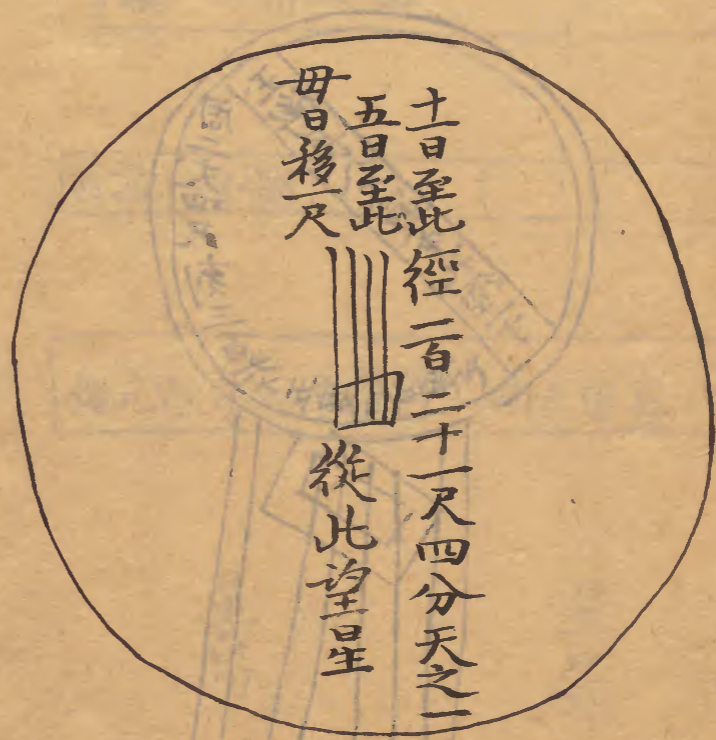 十一日至此
徑一百二十一尺四分天之一
五日至此
每日移一尺
從此望星